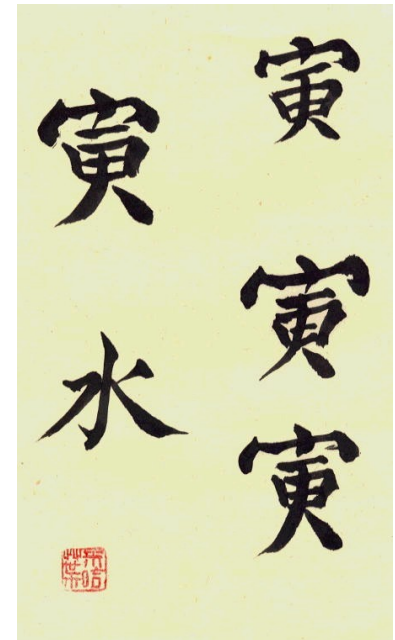 寅寅寅
寅水